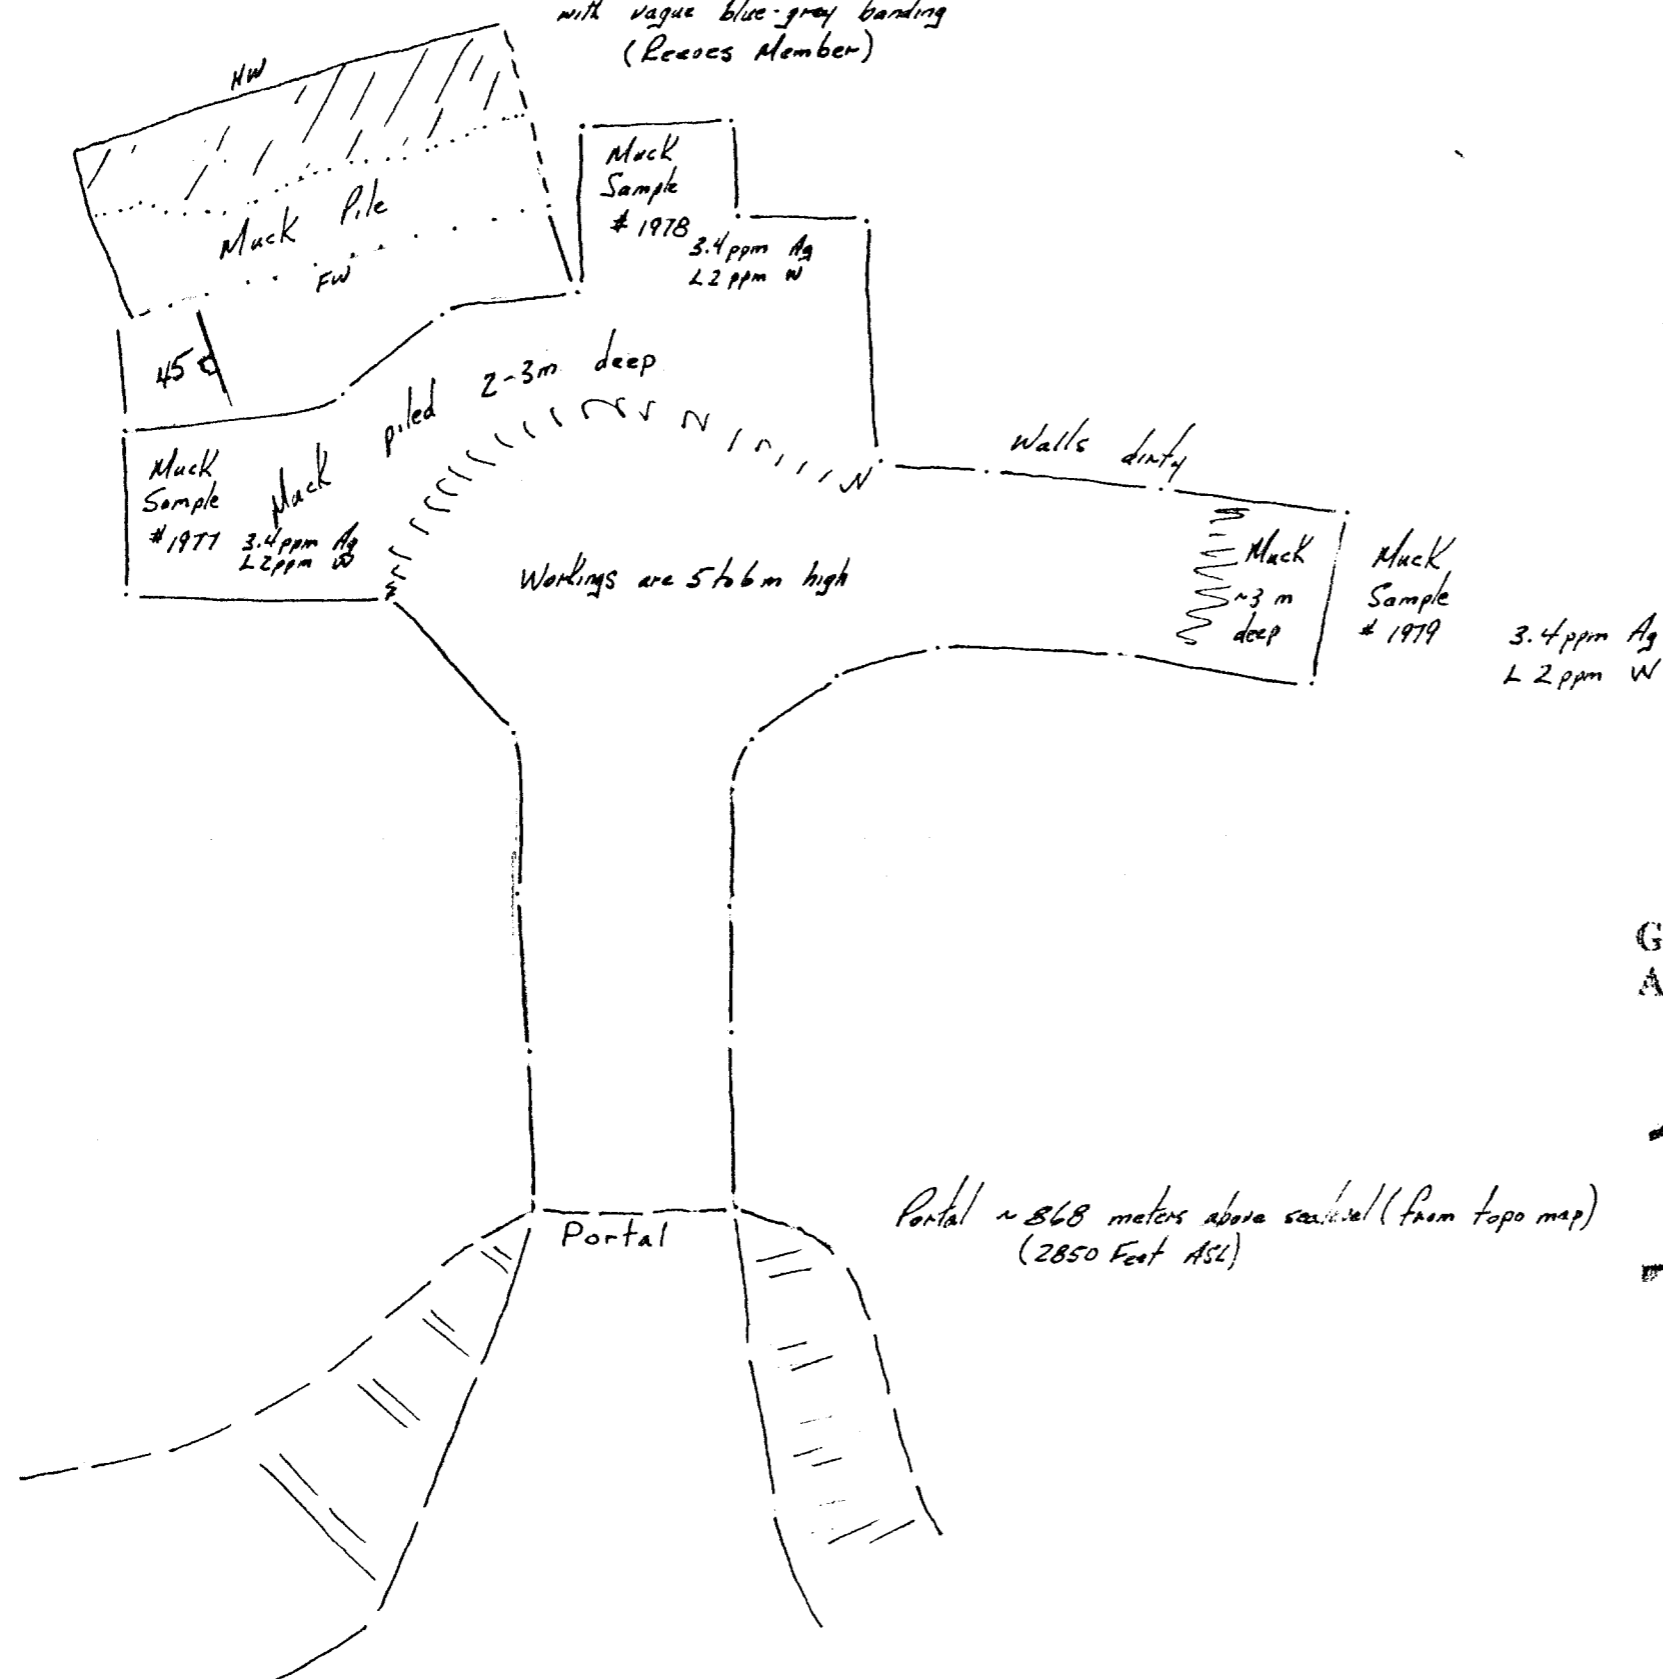 with vague blue-grey banding
(Reeves Member)
HW
Muck Pile
FW
45°
Muck
Sample
# 1978
3.4 ppm Ag
L 2 ppm W
Muck piled 2-3m deep
Walls dirty
Muck
Sample
# 1977
3.4 ppm Ag
L 2 ppm W
Workings are 5 to 6 m high
Muck
~3 m
deep
Muck
Sample
# 1979
3.4 ppm Ag
L 2 ppm W
G
A
Portal
Portal ~ 868 meters above sealevel (from topo map)
(2850 Feet ASL)